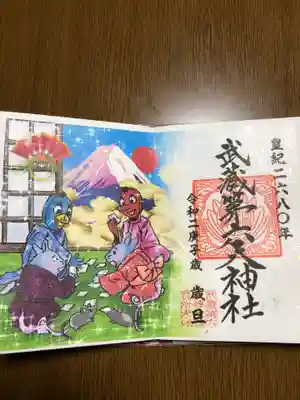 皇紀二六八〇年
武蔵第六天神社
令和二庚子歳
歳旦